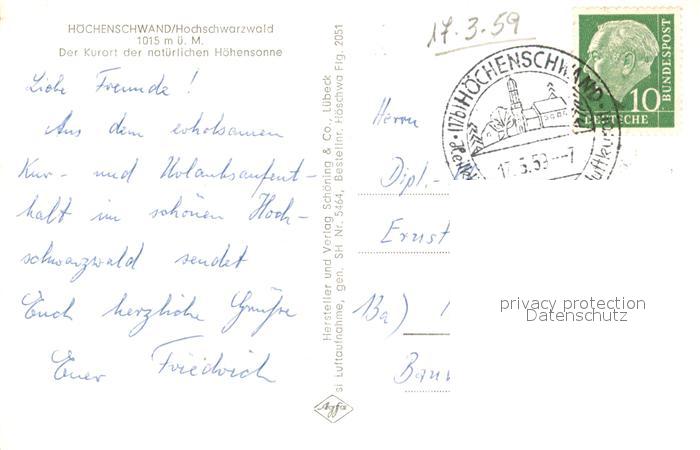 HÖCHENSCHWAND/Hochschwarzwald
1015 m ü. M.
Der Kurort der natürlichen Höhensonne
Liebe Freunde!
Aus dem erholsamen
Kur- und Urlaubsaufent-
halt im schönen Hoch-
schwarzwald sendet
Euch herzliche Grüsse
Euer Friedrich
Hersteller und Verlag Schöning & Co., Lübeck
si Luftaufnahme, gen. SH Nr. 5464, Bestellnr. Höschwa Flg. 2051
Agfa
17.3.59
(17b) HÖCHENSCHWAND
17.3.59--7
10
DEUTSCHE
BUNDESPOST
Herrn
Dipl.-
Ernst
13a)
privacy protection
Datenschutz